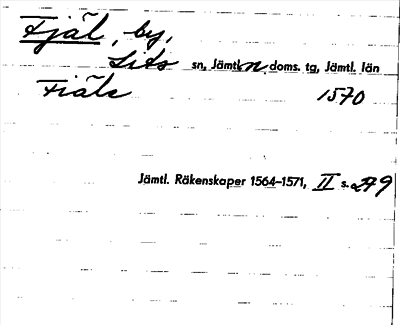 Fjäl, by,
Lits sn, Jämtl. n. doms. tg, Jämtl. län
Fiäls 1570
Jämtl. Räkenskaper 1564–1571, II s. 279